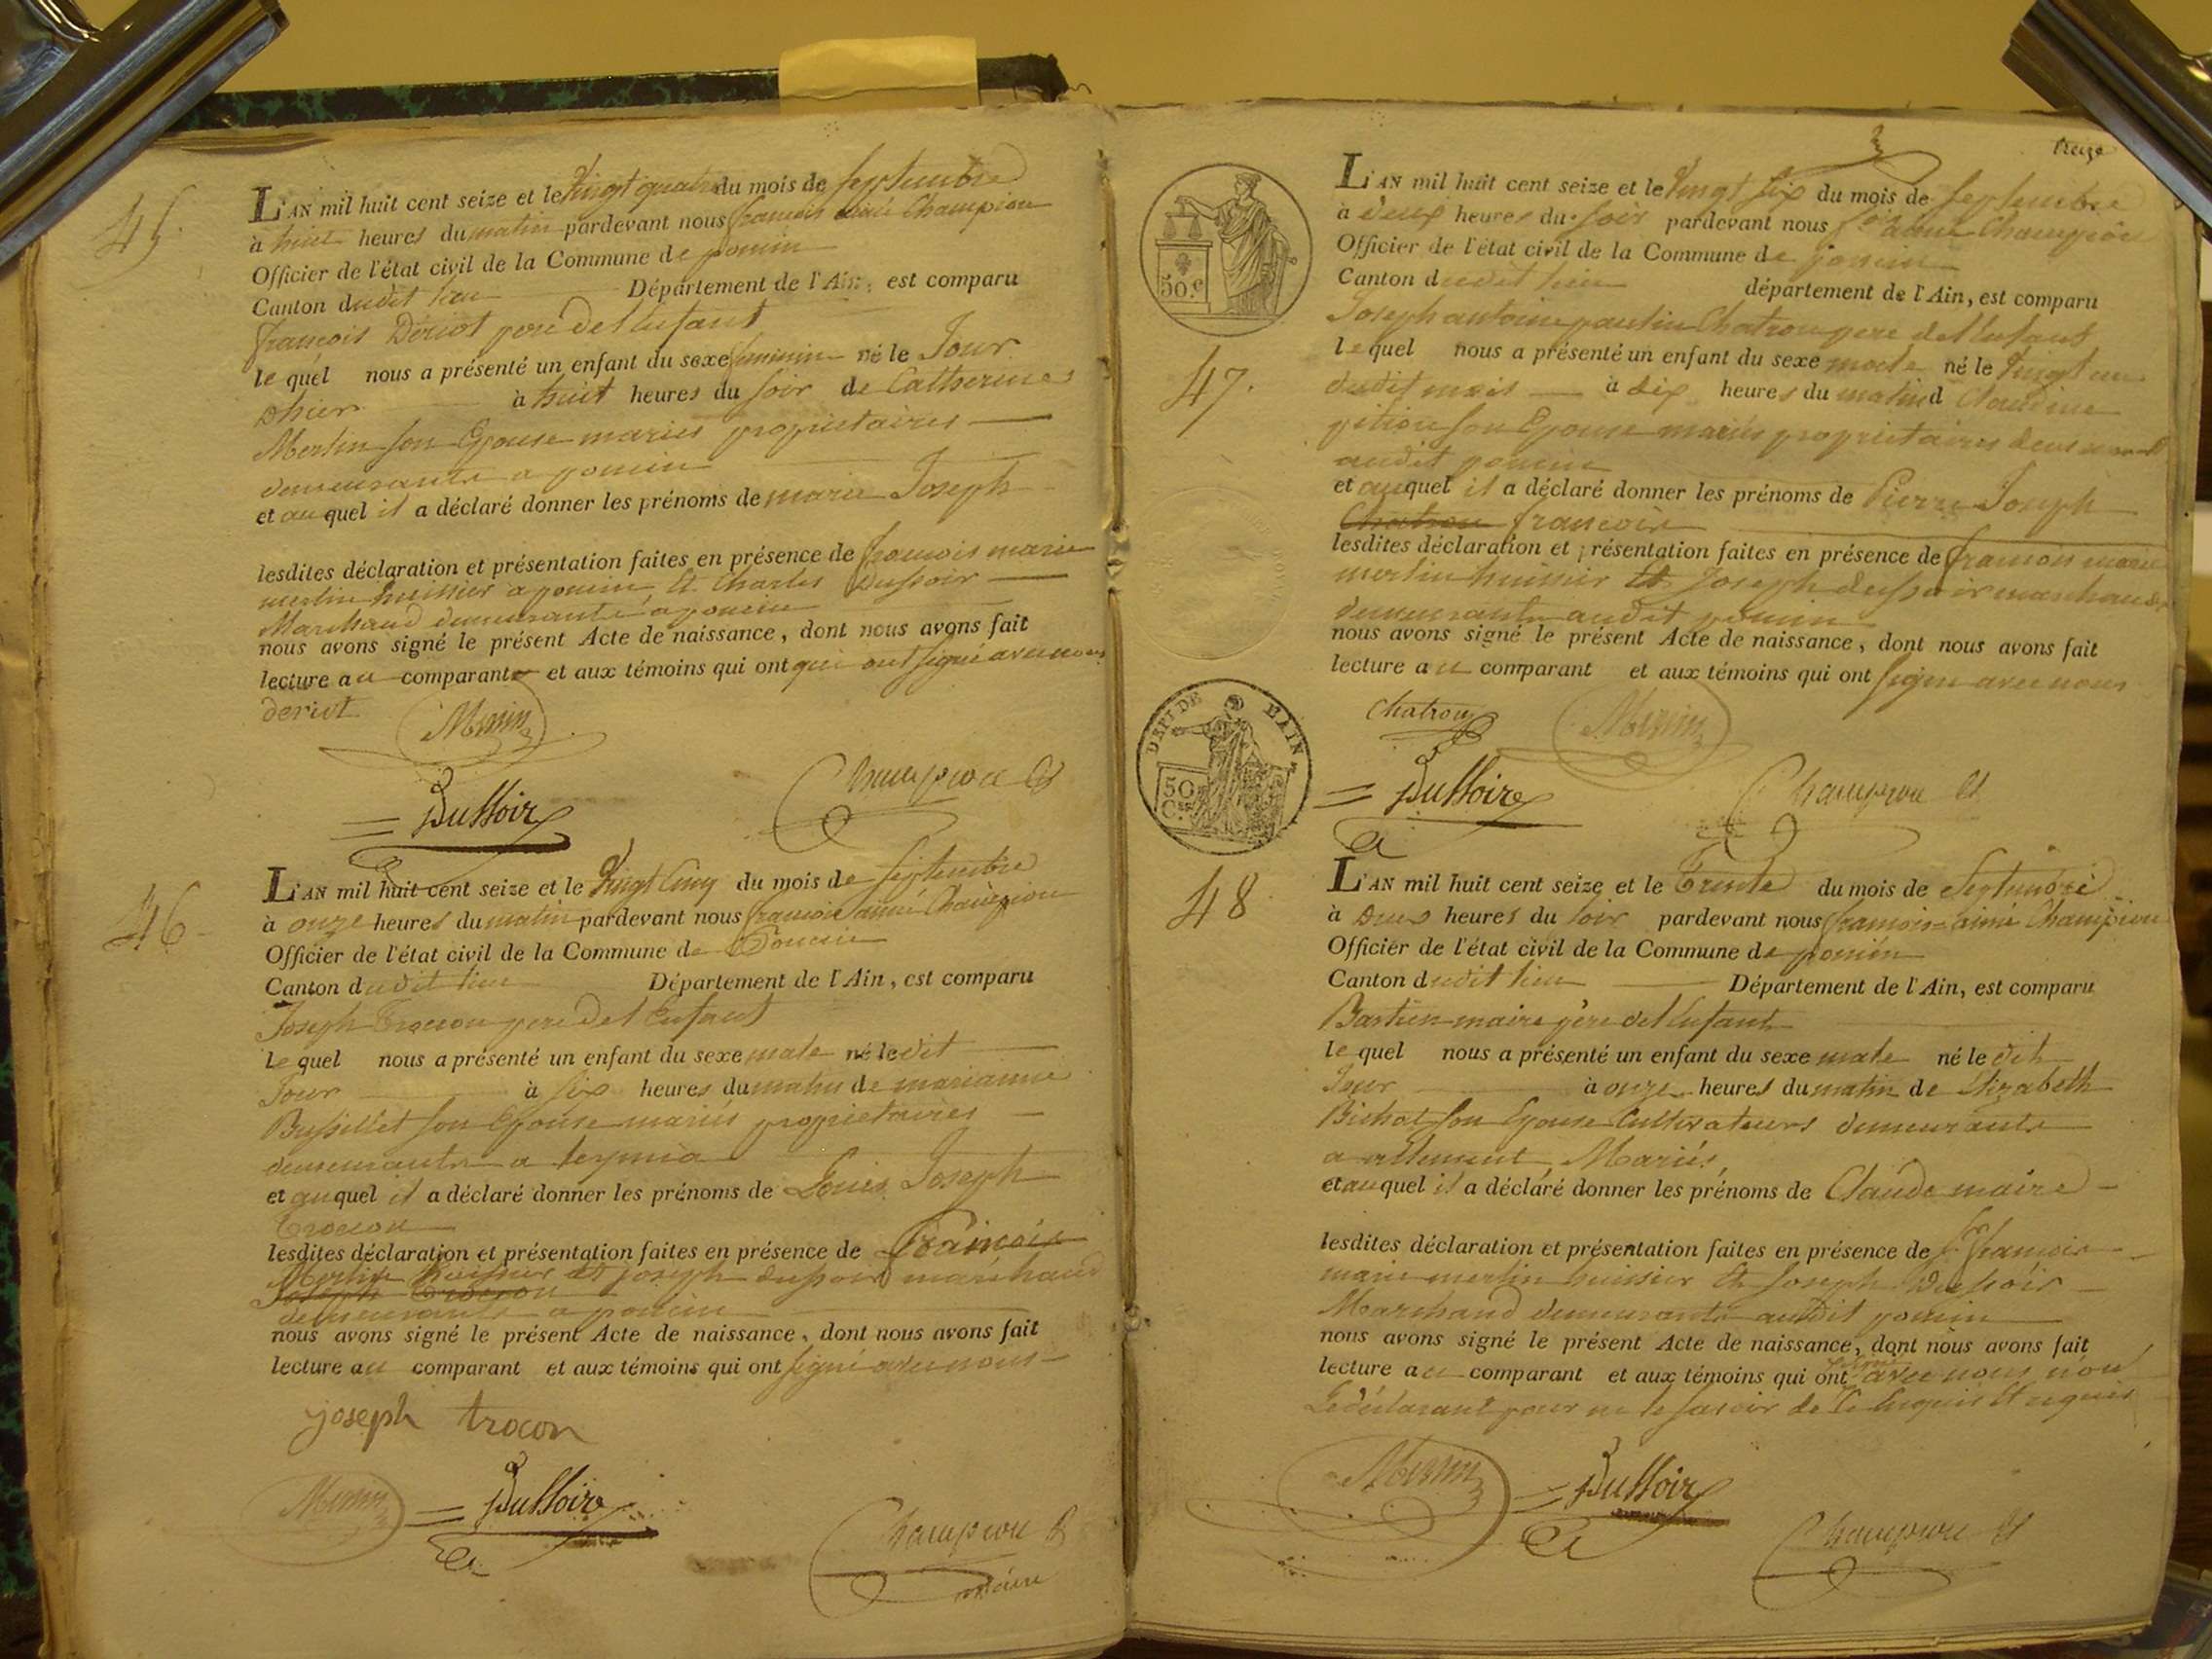 45.
L'AN mil huit cent seize et le Vingt quatre du mois de septembre
à huit heures du matin pardevant nous françois aimé Champion
Officier de l'état civil de la Commune de poncin
Canton dudit lieu Département de l'Ain, est comparu
françois Deriot pere de l'enfant
lequel nous a présenté un enfant du sexe feminin né le Jour
D'hier à huit heures du soir de Catherine
Merlin son Epouse mariés proprietaires
demeurants a poncin
et auquel il a déclaré donner les prénoms de marie Joseph
lesdites déclaration et présentation faites en présence de francois marie
merlin huissier a poncin, Et Charles Dussoir
Marchand demeurants a poncin
nous avons signé le présent Acte de naissance, dont nous avons fait
lecture au comparant et aux témoins qui ont qui ont signé avec nous
deriot Merlin
Dussoir Champion
46
L'AN mil huit cent seize et le Vingt Cinq du mois de septembre
à onze heures du matin pardevant nous francois aimé Champion
Officier de l'état civil de la Commune de Poncin
Canton dudit lieu Département de l'Ain, est comparu
Joseph Trocon pere de l'Enfant
lequel nous a présenté un enfant du sexe male né ledit
Jour à six heures du matin de marianne
Bussillet son Epouse mariés proprietaires
demeurants a
et auquel il a déclaré donner les prénoms de Louis Joseph
Trocon
lesdites déclaration et présentation faites en présence de francois
Merlin huissier et joseph dussoir marchand
Joseph Trocon
demeurants a poncin
nous avons signé le présent Acte de naissance, dont nous avons fait
lecture au comparant et aux témoins qui ont signé avec nous
joseph trocon
Merlin Dussoir Champion
maire
treize
50.c
L'AN mil huit cent seize et le Vingt six du mois de septembre
à deux heures du soir pardevant nous fois aimé Champion
Officier de l'état civil de la Commune de poncin
Canton dudit lieu département de l'Ain, est comparu
Joseph antoine paulin Chatron pere de l'enfant
47.
lequel nous a présenté un enfant du sexe male né le Vingt un
dudit mois à dix heures du matin d Claudine
son Epouse mariés proprietaires demeurant
audit poncin
et auquel il a déclaré donner les prénoms de Pierre Joseph
Chatron francois
lesdites déclaration et présentation faites en présence de francois marie
merlin huissier Et Joseph dussoir marchand
demeurants audit poncin
nous avons signé le présent Acte de naissance, dont nous avons fait
lecture au comparant et aux témoins qui ont signé avec nous
Chatron Merlin
Dussoir Champion
DEPT DE L'AIN
50
C.
48
L'AN mil huit cent seize et le Trente du mois de Septembre
à Deux heures du soir pardevant nous francois aimé Champion
Officier de l'état civil de la Commune de poncin
Canton dudit lieu Département de l'Ain, est comparu
Bastien maire père de l'enfant
lequel nous a présenté un enfant du sexe male né ledit
Jour à onze heures du matin de Elizabeth
Bichat son Epouse Cultivateurs demeurants
a allement Mariés
et auquel il a déclaré donner les prénoms de Claude maire
lesdites déclaration et présentation faites en présence de Sr francois
marie merlin huissier Et Joseph Dussoir
Marchand demeurants audit poncin
nous avons signé le présent Acte de naissance, dont nous avons fait
lecture au comparant et aux témoins qui ont signé avec nous non
Le déclarant pour ne le savoir de ce Enquis Et requis
Merlin Dussoir Champion